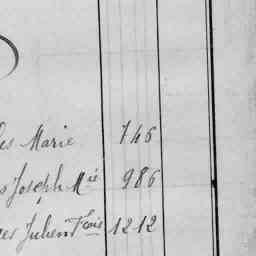 Marie 746
Joseph Mie 986
Julien Fcois 1212